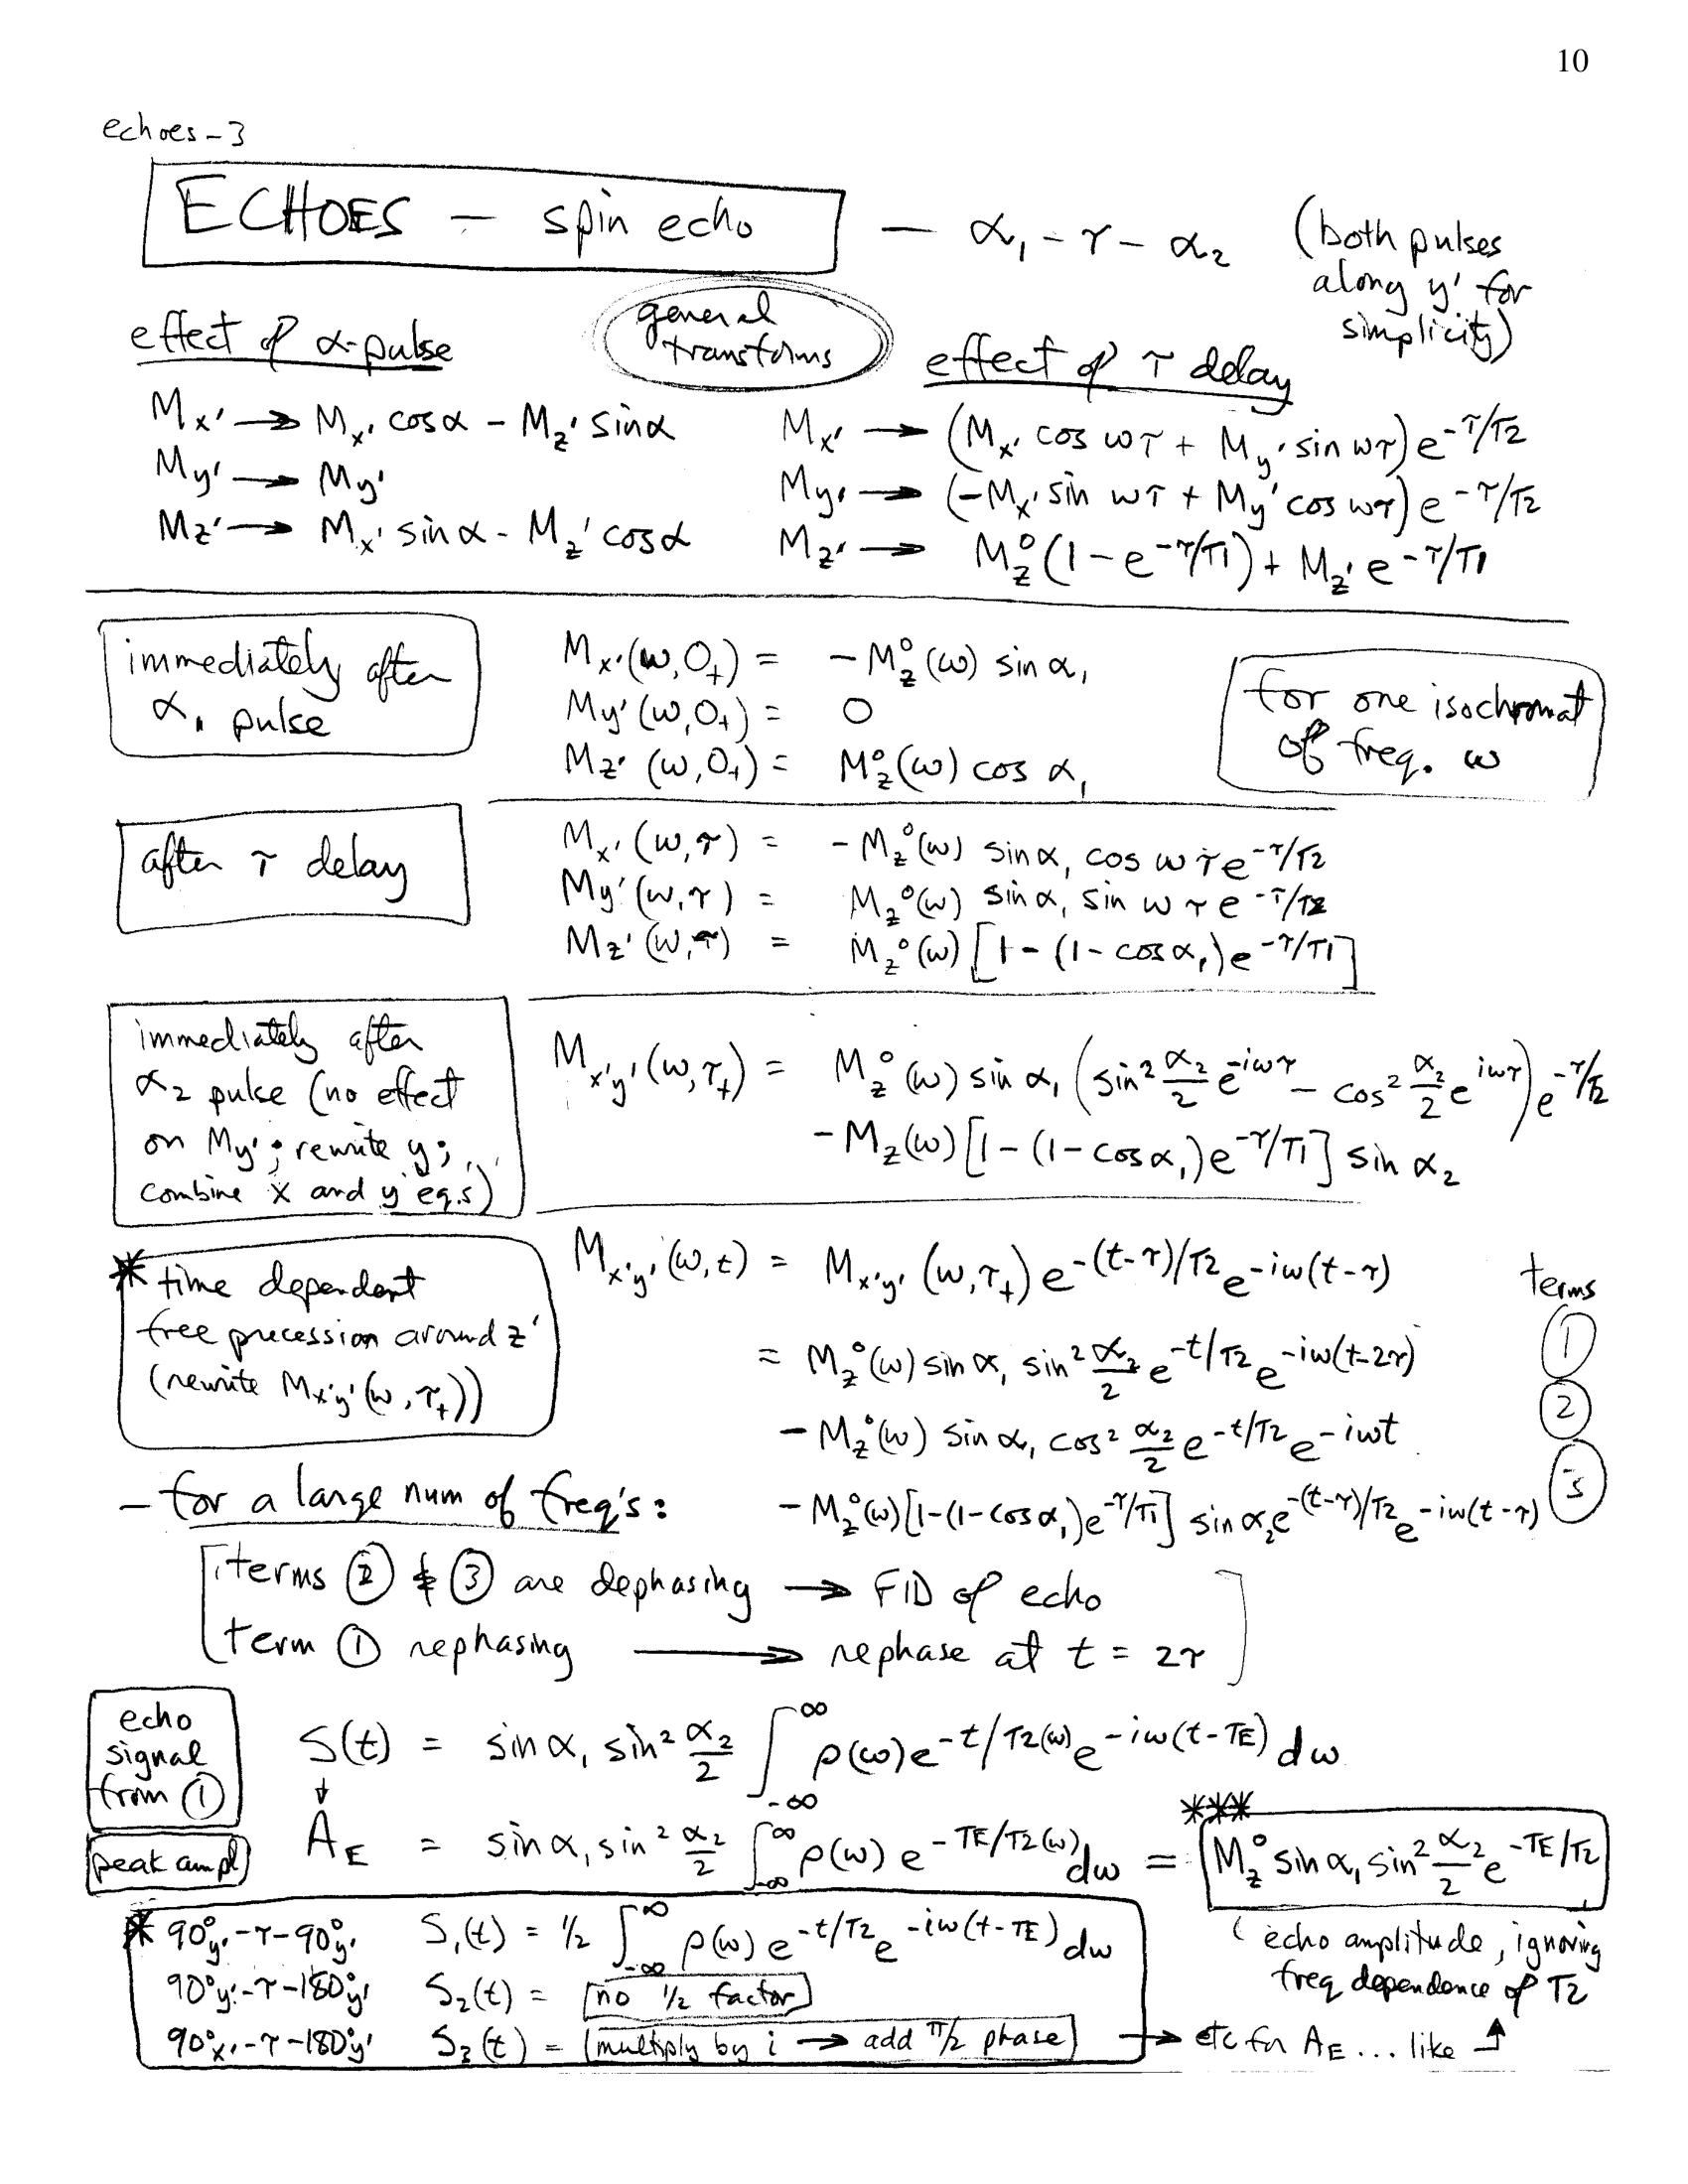 10
echoes-3
ECHOES — spin echo — α₁ - τ - α₂ (both pulses along y' for simplicity)
general transforms
effect of α-pulse
effect of τ delay
Mx' → Mx' cosα - Mz' sinα
Mx' → (Mx' cos ωτ + My' sin ωτ) e^-τ/T2
My' → My'
My' → (-Mx' sin ωτ + My' cos ωτ) e^-τ/T2
Mz' → Mx' sinα - Mz' cosα
Mz' → Mz° (1 - e^-τ/T1) + Mz' e^-τ/T1
immediately after α₁ pulse
Mx'(ω,0₊) = -Mz°(ω) sin α₁
My'(ω,0₊) = 0
Mz'(ω,0₊) = Mz°(ω) cos α₁
for one isochromat of freq. ω
after τ delay
Mx'(ω,τ) = -Mz°(ω) sinα₁ cos ωτ e^-τ/T2
My'(ω,τ) = Mz°(ω) sinα₁ sin ωτ e^-τ/T2
Mz'(ω,τ) = Mz°(ω) [1 - (1 - cosα₁) e^-τ/T1]
immediately after
α₂ pulse (no effect
on My'; rewrite y;
combine x and y eq.s)
Mx'y'(ω,τ₊) = Mz°(ω) sin α₁ (sin² α₂/2 e^-iωτ - cos² α₂/2 e^iωτ) e^-τ/T2
- Mz(ω) [1 - (1 - cosα₁) e^-τ/T1] sin α₂
* time dependent
free precession around z'
(rewrite Mx'y'(ω,τ₊))
Mx'y'(ω,t) = Mx'y'(ω,τ₊) e^-(t-τ)/T2 e^-iω(t-τ)
terms
= Mz°(ω) sin α₁ sin² α₂/2 e^-t/T2 e^-iω(t-2τ) ①
- Mz°(ω) sin α₁ cos² α₂/2 e^-t/T2 e^-iωt ②
- Mz°(ω) [1-(1-cosα₁)e^-τ/T1] sinα₂ e^-(t-τ)/T2 e^-iω(t-τ) ③
- for a large num of freq's:
terms ② & ③ are dephasing → FID of echo
term ① rephasing → rephase at t = 2τ
echo signal from ①
S(t) = sin α₁ sin² α₂/2 ∫_-∞^∞ ρ(ω) e^-t/T2(ω) e^-iω(t-TE) dω
peak ampl
A_E = sin α₁ sin² α₂/2 ∫_-∞^∞ ρ(ω) e^-TE/T2(ω) dω = Mz° sin α₁ sin² α₂/2 e^-TE/T2
***
(echo amplitude, ignoring
freq dependence of T2
* 90°y'-τ-90°y' S₁(t) = ½ ∫_-∞^∞ ρ(ω) e^-t/T2 e^-iω(t-TE) dω
90°y'-τ-180°y' S₂(t) = [no ½ factor]
90°x'-τ-180°y' S₃(t) = [multiply by i → add π/2 phase] → etc for A_E ... like ↑